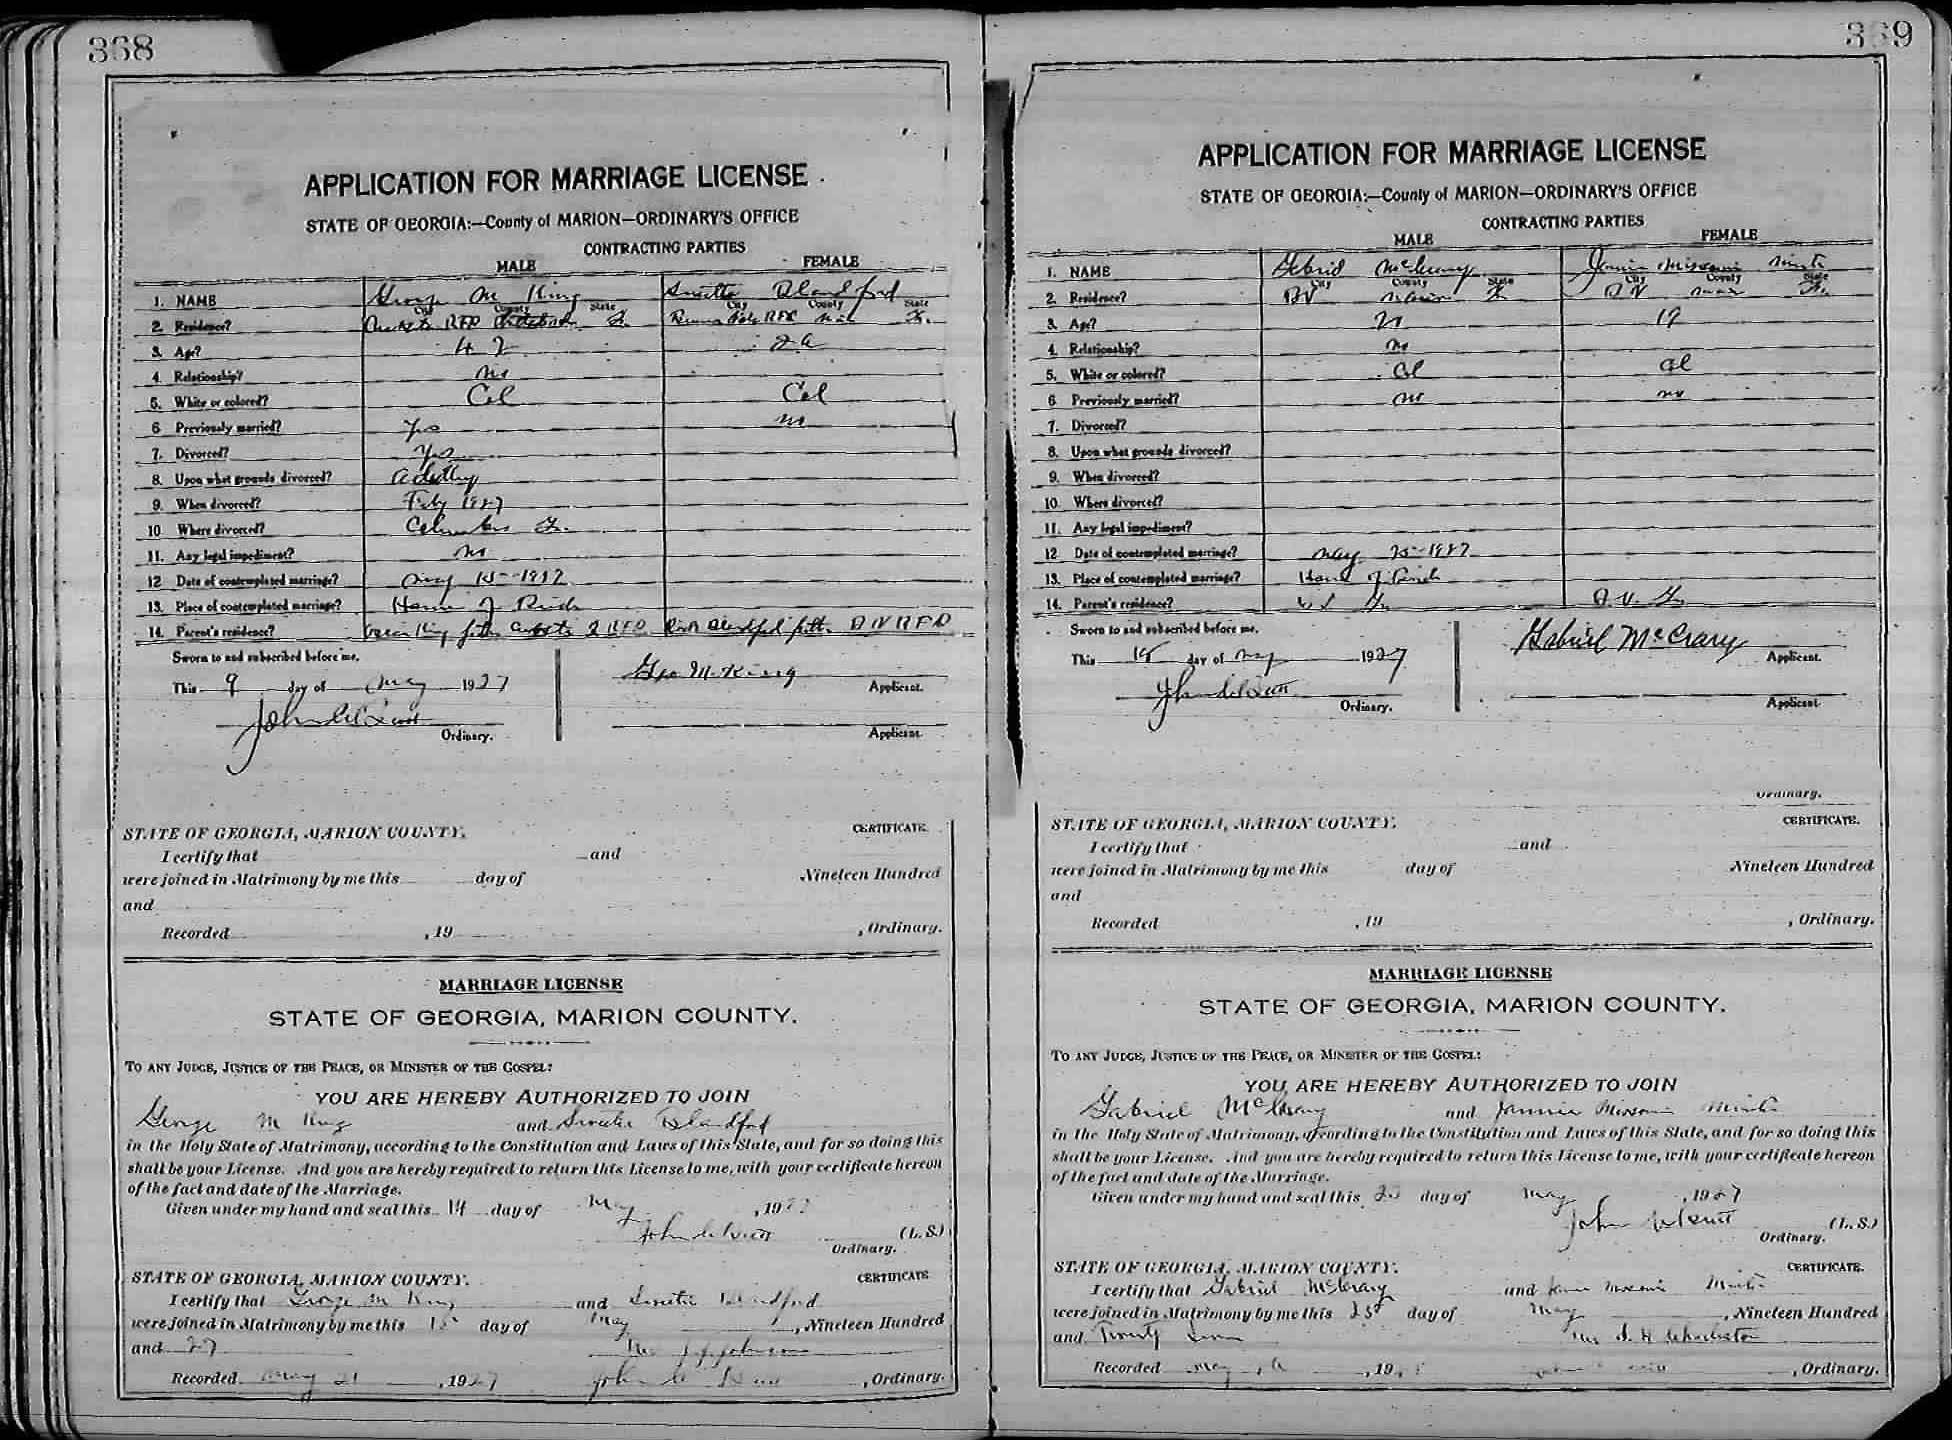 368
APPLICATION FOR MARRIAGE LICENSE
STATE OF GEORGIA:—County of MARION—ORDINARY'S OFFICE
CONTRACTING PARTIES
MALE FEMALE
1. NAME George M King Blandford
City County State City County State
2. Residence? RFD Ga. RFD Ga.
3. Age? 42
4. Relationship? no
5. White or colored? Col Col
6 Previously married? yes no
7. Divorced? yes
8. Upon what grounds divorced?
9. When divorced? 1927
10 Where divorced? Columbus Ga.
11. Any legal impediment? no
12 Date of contemplated marriage? May 15-1927
13. Place of contemplated marriage? Home of Bride
14. Parent's residence? King father RFD Blandford fath. B V RFD
Sworn to and subscribed before me.
This 9 day of May 1927 Geo M. King Applicant.
Ordinary. Applicant.
STATE OF GEORGIA, MARION COUNTY. CERTIFICATE.
I certify that and
were joined in Matrimony by me this day of Nineteen Hundred
and
Recorded , 19 , Ordinary.
MARRIAGE LICENSE
STATE OF GEORGIA, MARION COUNTY.
TO ANY JUDGE, JUSTICE OF THE PEACE, OR MINISTER OF THE GOSPEL:
YOU ARE HEREBY AUTHORIZED TO JOIN
George M King and Blandford
in the Holy State of Matrimony, according to the Constitution and Laws of this State, and for so doing this
shall be your License. And you are hereby required to return this License to me, with your certificate hereon
of the fact and date of the Marriage.
Given under my hand and seal this 14 day of May , 1927
(L. S.)
Ordinary.
STATE OF GEORGIA, MARION COUNTY. CERTIFICATE
I certify that George M King and Blandford
were joined in Matrimony by me this 15 day of May , Nineteen Hundred
and 27 Johnson
Recorded May 21 , 1927 , Ordinary.
369
APPLICATION FOR MARRIAGE LICENSE
STATE OF GEORGIA:—County of MARION—ORDINARY'S OFFICE
CONTRACTING PARTIES
MALE FEMALE
1. NAME McCrary
City County State City County State
2. Residence? BV Marion Ga BV Ga.
3. Age? 19
4. Relationship? no
5. White or colored? Col Col
6 Previously married? no no
7. Divorced?
8. Upon what grounds divorced?
9. When divorced?
10. Where divorced?
11. Any legal impediment?
12 Date of contemplated marriage? May 25-1927
13. Place of contemplated marriage? Home of Bride
14. Parent's residence? Ga B.V. Ga
Sworn to and subscribed before me.
This day of May 1927 Gabriel McCrary Applicant.
Ordinary. Applicant.
Ordinary.
STATE OF GEORGIA, MARION COUNTY. CERTIFICATE.
I certify that and
were joined in Matrimony by me this day of Nineteen Hundred
and
Recorded , 19 , Ordinary.
MARRIAGE LICENSE
STATE OF GEORGIA, MARION COUNTY.
TO ANY JUDGE, JUSTICE OF THE PEACE, OR MINISTER OF THE GOSPEL:
YOU ARE HEREBY AUTHORIZED TO JOIN
Gabriel McCrary and
in the Holy State of Matrimony, according to the Constitution and Laws of this State, and for so doing this
shall be your License. And you are hereby required to return this License to me, with your certificate hereon
of the fact and date of the Marriage.
Given under my hand and seal this day of May , 1927
John (L. S.)
Ordinary.
STATE OF GEORGIA, MARION COUNTY. CERTIFICATE.
I certify that Gabriel McCrary and
were joined in Matrimony by me this 25 day of May , Nineteen Hundred
and Twenty
Recorded May , 19 , Ordinary.